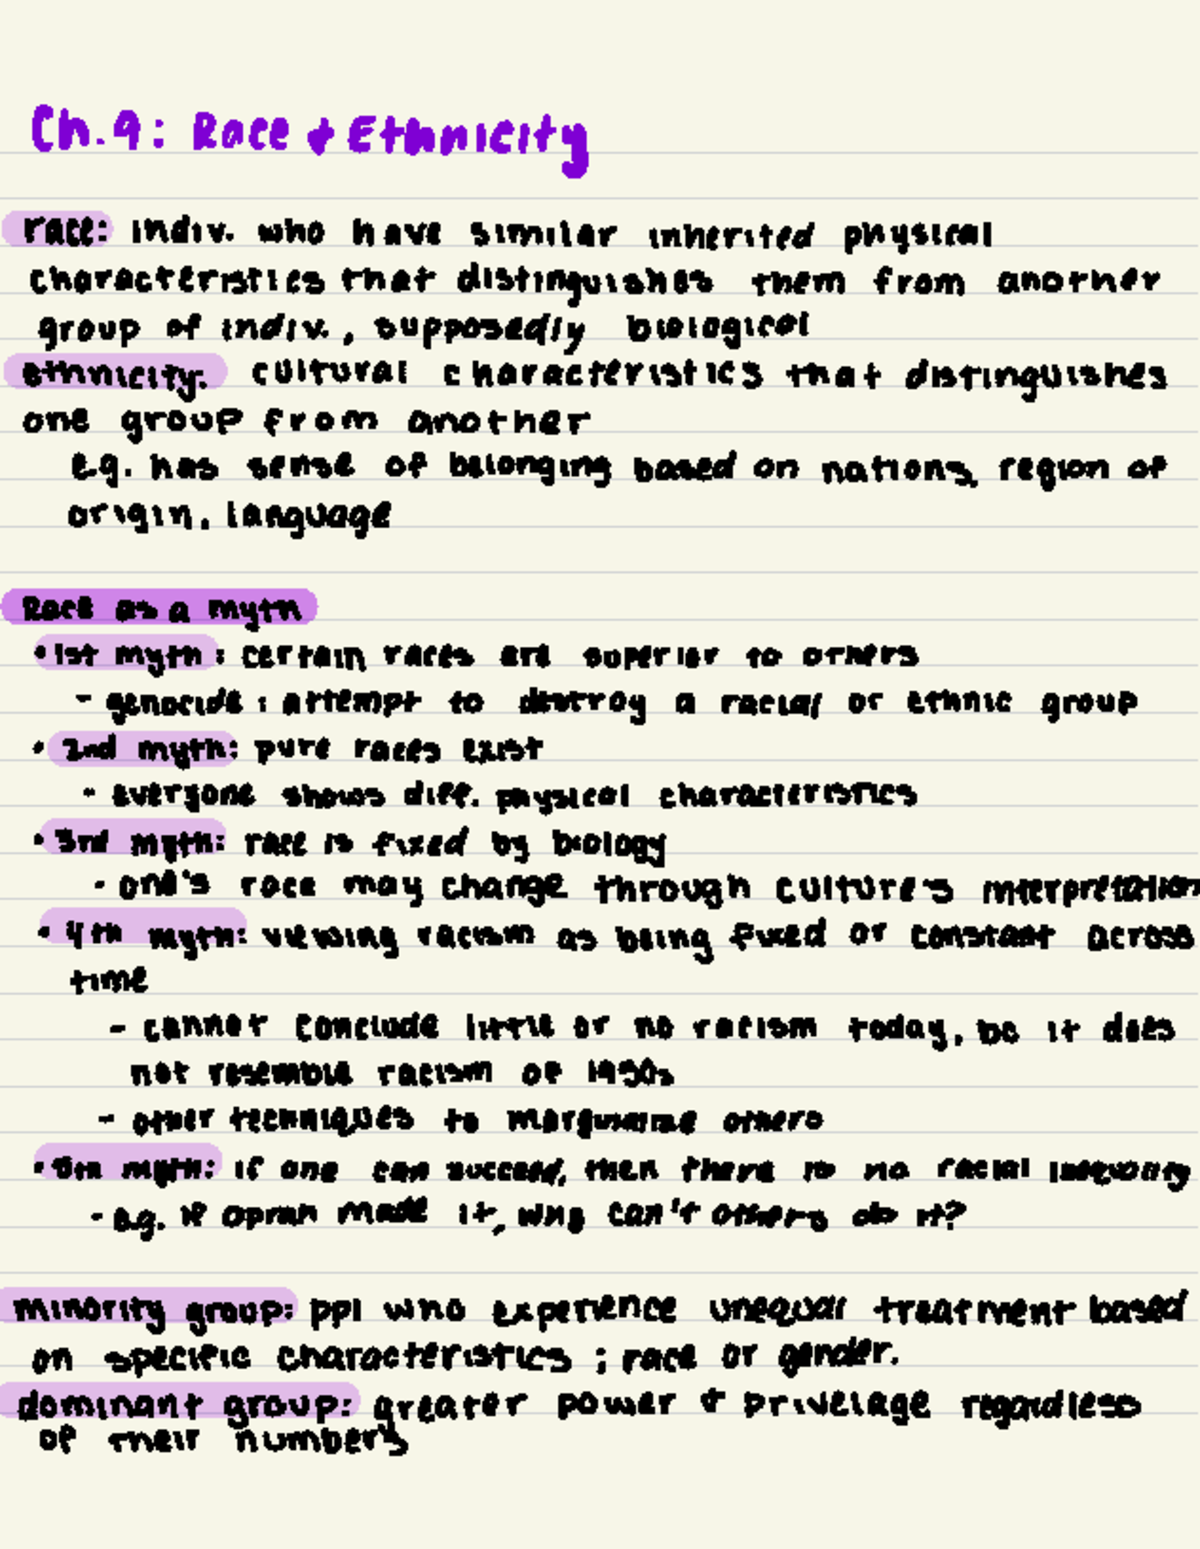 Ch.9: Race & Ethnicity
race: indiv. who have similar inherited physical
characteristics that distinguishes them from another
group of indiv., supposedly biological
ethnicity: cultural characteristics that distinguishes
one group from another
e.g. has sense of belonging based on nations, region of
origin, language
Race as a myth
• 1st myth: certain races are superior to others
- genocide: attempt to destroy a racial or ethnic group
• 2nd myth: pure races exist
- everyone shows diff. physical characteristics
• 3rd myth: race is fixed by biology
- one's race may change through culture's interpretation
• 4th myth: viewing racism as being fixed or constant across
time
- cannot conclude little or no racism today, bc it does
not resemble racism of 1950s
- other techniques to marginalize others
• 5th myth: if one can succeed, then there is no racial inequality
- e.g. if Oprah made it, why can't others do it?
minority group: ppl who experience unequal treatment based
on specific characteristics; race or gender.
dominant group: greater power & privelage regardless
of their numbers